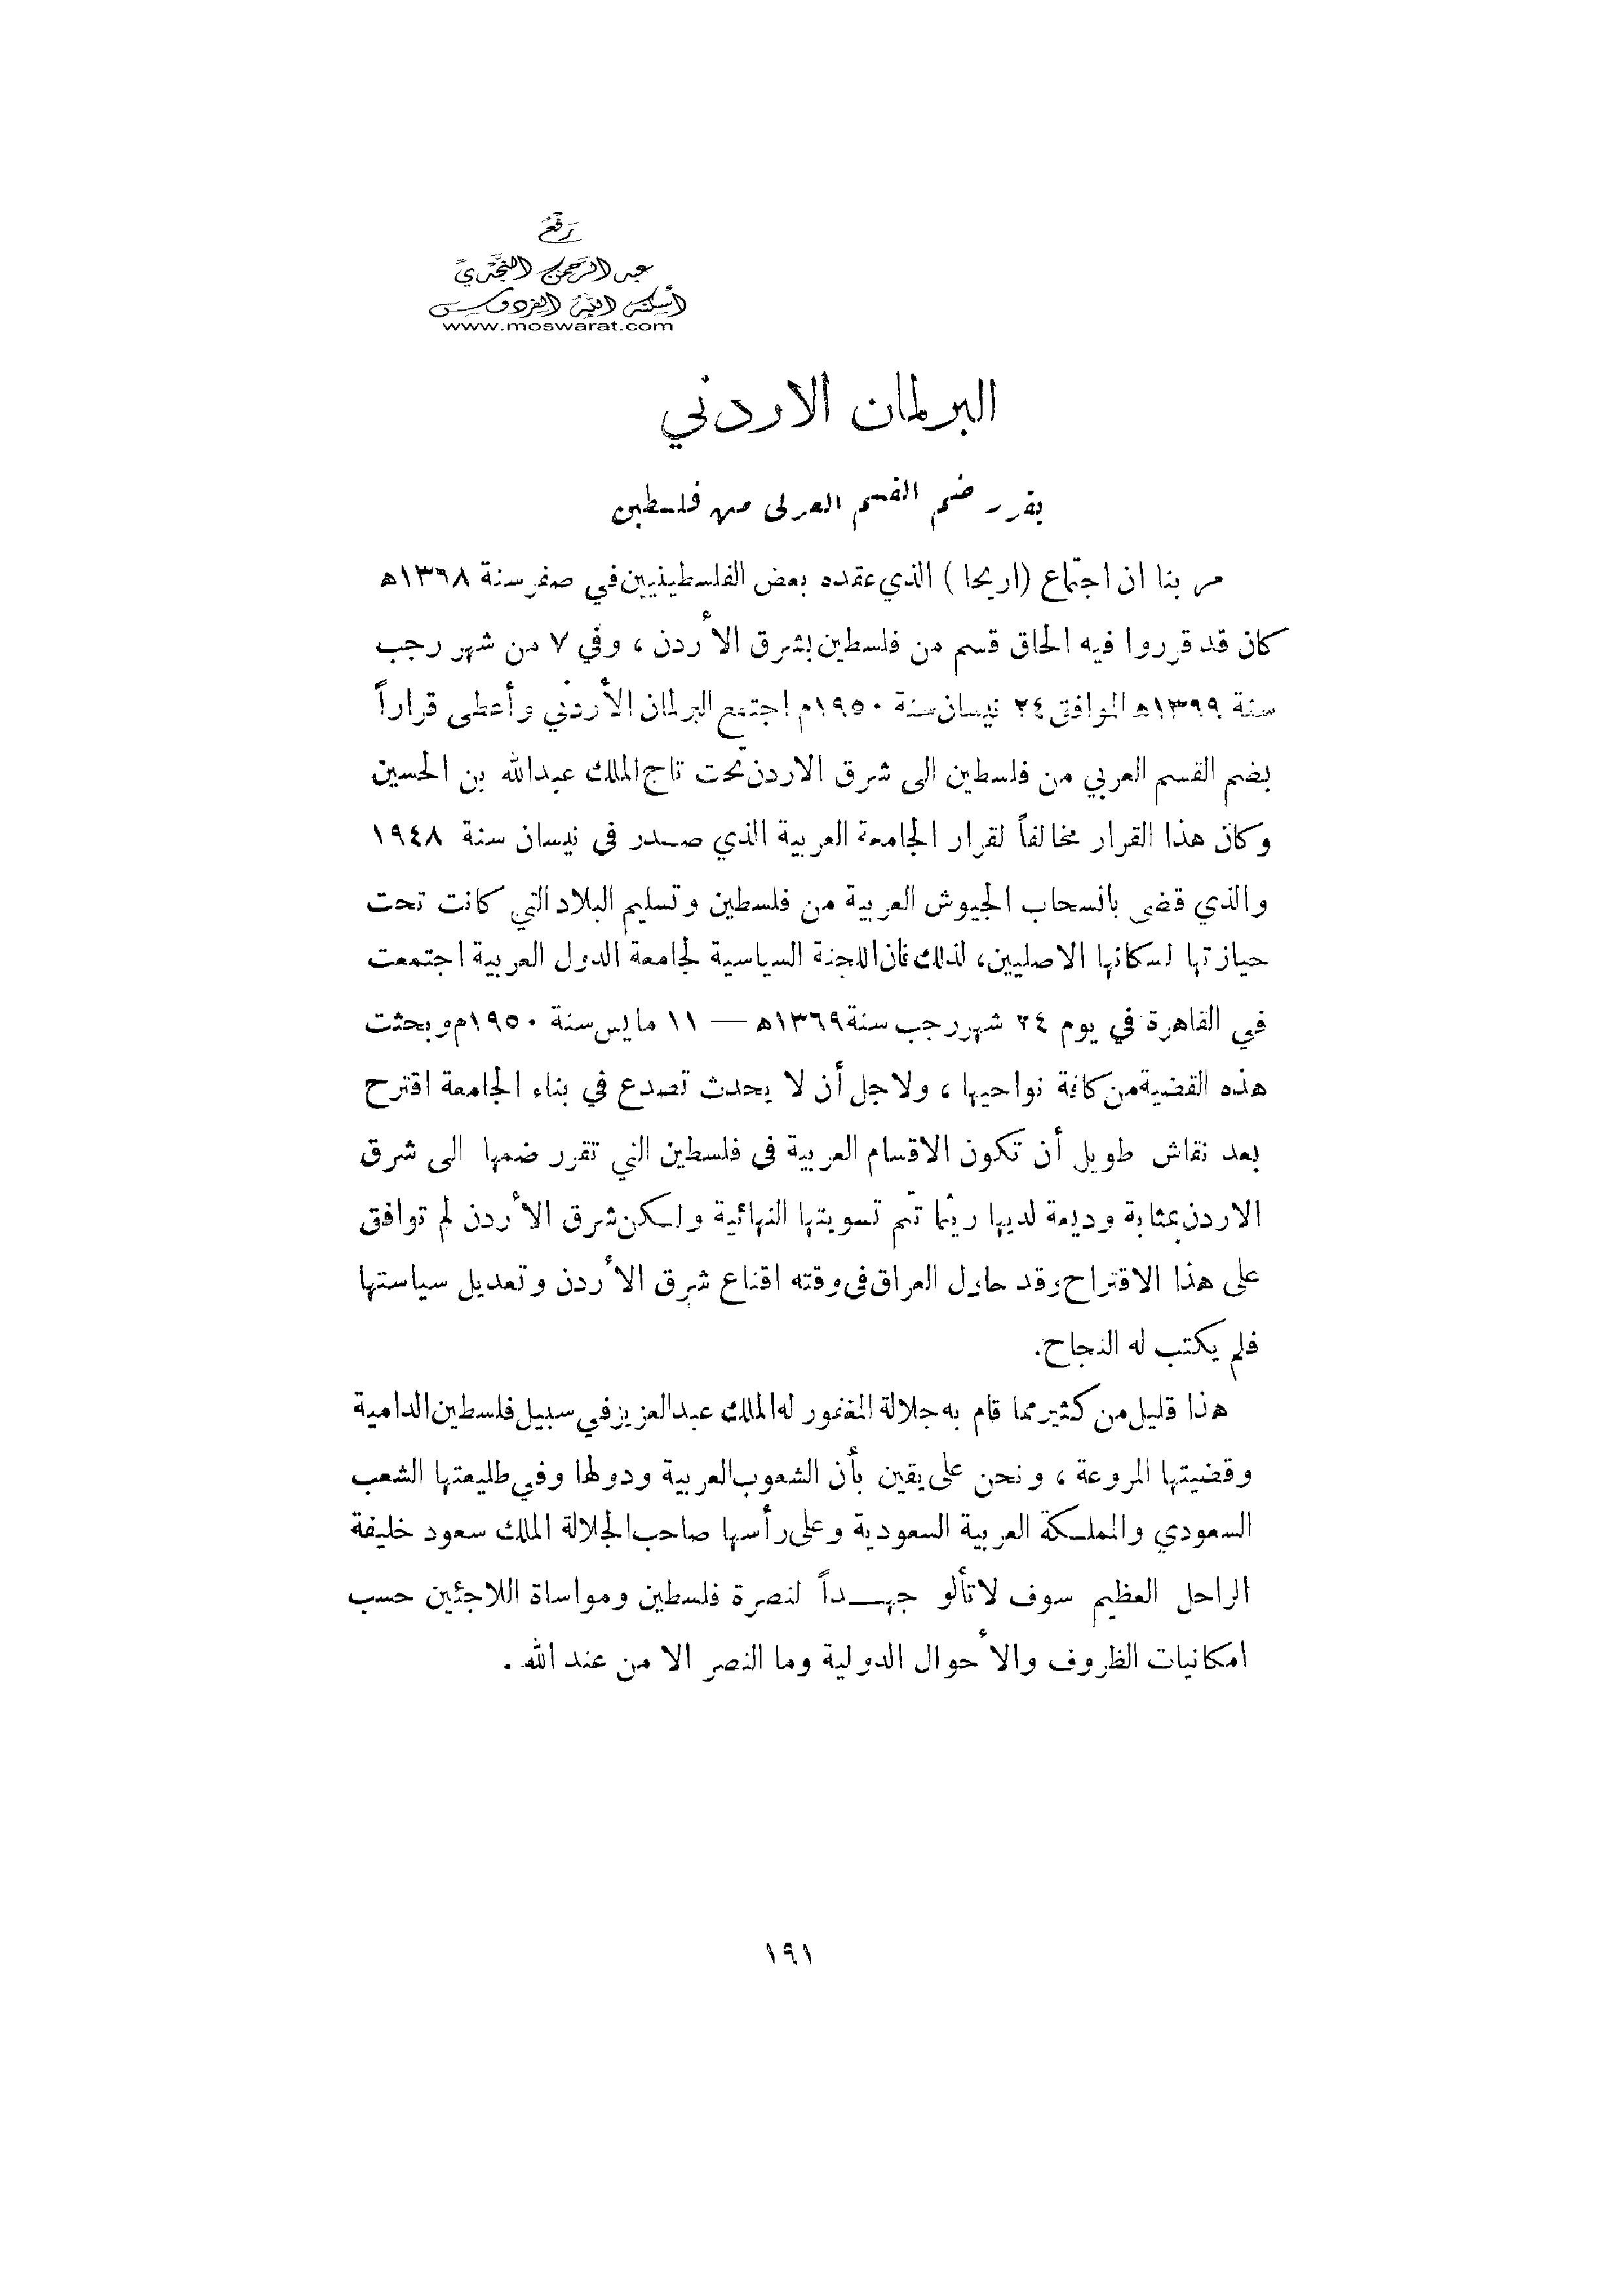 رَفْعُ
عبد الرحمن النجدي
أسكنه الله الفردوس
www.moswarat.com
البرلمان الاردني
يقرر ضم القسم العربي من فلسطين
مر بنا ان اجتماع (اريحا) الذي عقده بعض الفلسطينيين في صفر سنة ١٣٦٨ه
كان قد قرروا فيه الحاق قسم من فلسطين بشرق الأردن ، وفي ٧ من شهر رجب
سنة ١٣٦٩ه الموافق ٢٤ نيسان سنة ١٩٥٠م اجتمع البرلمان الأردني وأعطى قراراً
بضم القسم العربي من فلسطين الى شرق الاردن تحت تاج الملك عبدالله بن الحسين
وكان هذا القرار مخالفاً لقرار الجامعة العربية الذي صـدر في نيسان سنة ١٩٤٨
والذي قضى بانسحاب الجيوش العربية من فلسطين وتسليم البلاد التي كانت تحت
حيازتها لسكانها الاصليين، لذلك فان اللجنة السياسية لجامعة الدول العربية اجتمعت
في القاهرة في يوم ٢٤ شهر رجب سنة ١٣٦٩ه — ١١ مايس سنة ١٩٥٠م وبحثت
هذه القضية من كافة نواحيها ، ولاجل أن لا يحدث تصدع في بناء الجامعة اقترح
بعد نقاش طويل أن تكون الاقسام العربية في فلسطين التي تقرر ضمها الى شرق
الاردن بمثابة وديعة لديها ريثما تتم تسويتها النهائية ولـكن شرق الأردن لم توافق
على هذا الاقتراح وقد حاول العراق في وقته اقناع شرق الأردن وتعديل سياستها
فلم يكتب له النجاح.
هذا قليل من كثير مما قام به جلالة المغفور له الملك عبدالعزيز في سبيل فلسطين الدامية
وقضيتها المروعة ، ونحن على يقين بأن الشعوب العربية ودولها وفي طليعتها الشعب
السعودي والمملـكة العربية السعودية وعلى رأسها صاحب الجلالة الملك سعود خليفة
الراحل العظيم سوف لا تألو جهـــداً لنصرة فلسطين ومواساة اللاجئين حسب
امكانيات الظروف والأحوال الدولية وما النصر الا من عند الله .
١٩١